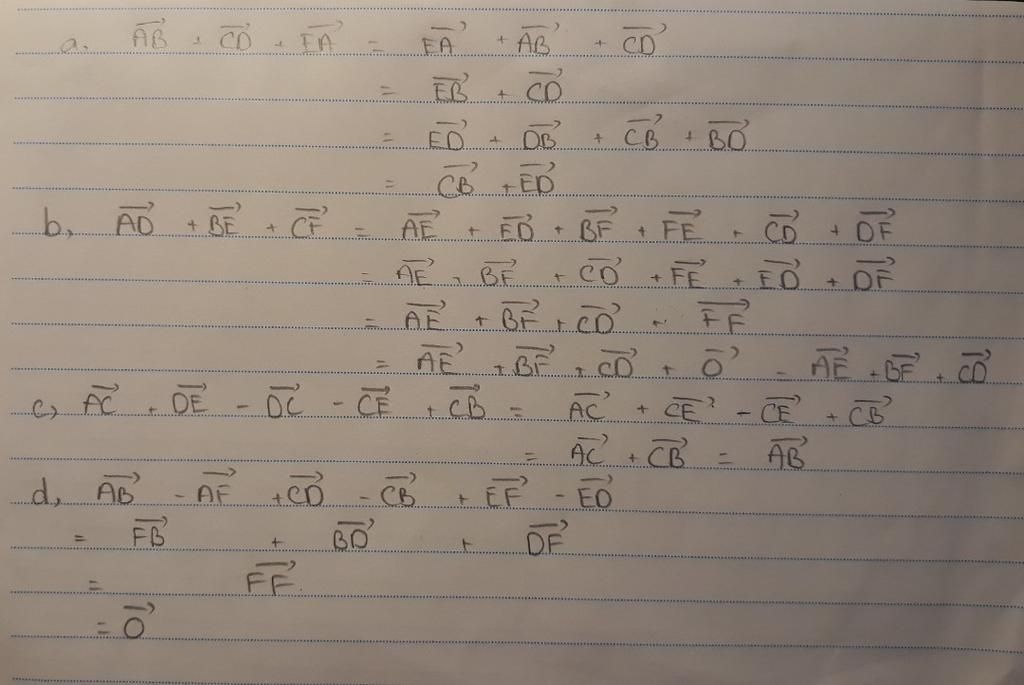 a. $\overrightarrow{AB} + \overrightarrow{CD} + \overrightarrow{EA} = \overrightarrow{EA} + \overrightarrow{AB} + \overrightarrow{CD}$
$= \overrightarrow{EB} + \overrightarrow{CD}$
$= \overrightarrow{ED} + \overrightarrow{DB} + \overrightarrow{CB} + \overrightarrow{BD}$
$= \overrightarrow{CB} + \overrightarrow{ED}$
b, $\overrightarrow{AD} + \overrightarrow{BE} + \overrightarrow{CF} = \overrightarrow{AE} + \overrightarrow{ED} + \overrightarrow{BF} + \overrightarrow{FE} + \overrightarrow{CD} + \overrightarrow{DF}$
$= \overrightarrow{AE} + \overrightarrow{BF} + \overrightarrow{CD} + \overrightarrow{FE} + \overrightarrow{ED} + \overrightarrow{DF}$
$= \overrightarrow{AE} + \overrightarrow{BF} + \overrightarrow{CD} + \overrightarrow{FF}$
$= \overrightarrow{AE} + \overrightarrow{BF} + \overrightarrow{CD} + \overrightarrow{O} = \overrightarrow{AE} + \overrightarrow{BF} + \overrightarrow{CD}$
c, $\overrightarrow{AC} + \overrightarrow{DE} - \overrightarrow{DC} - \overrightarrow{CE} + \overrightarrow{CB} = \overrightarrow{AC} + \overrightarrow{CE} - \overrightarrow{CE} + \overrightarrow{CB}$
$= \overrightarrow{AC} + \overrightarrow{CB} = \overrightarrow{AB}$
d, $\overrightarrow{AB} - \overrightarrow{AF} + \overrightarrow{CD} - \overrightarrow{CB} + \overrightarrow{EF} - \overrightarrow{ED}$
$= \overrightarrow{FB} + \overrightarrow{BD} + \overrightarrow{DF}$
$= \overrightarrow{FF}.$
$= \overrightarrow{O}$